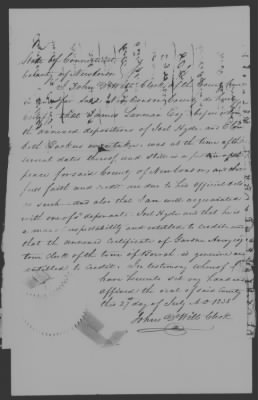 State of Connecticut
County of New London
I John D Wills Clerk of the County
in and for said county do here
certify that James Esq before
the annexed depositions of Joel Hyde and
beth Backus were taken was at the time of the
several dates thereof and still is a justice of the
peace for said County of New London and that
full faith and credit are due to his official acts
as such and also that I am well acquainted
with one of ye deponents Joel Hyde and that he is
a man of respectability and entitled to credit and
that the annexed Certificate of
town clerk of the town of Norwich is genuine and
entitled to credit. In testimony whereof I
have hereunto set my hand and
affixed the seal of said County
this 27 day of July A.D. 1838
John D Wills Clerk